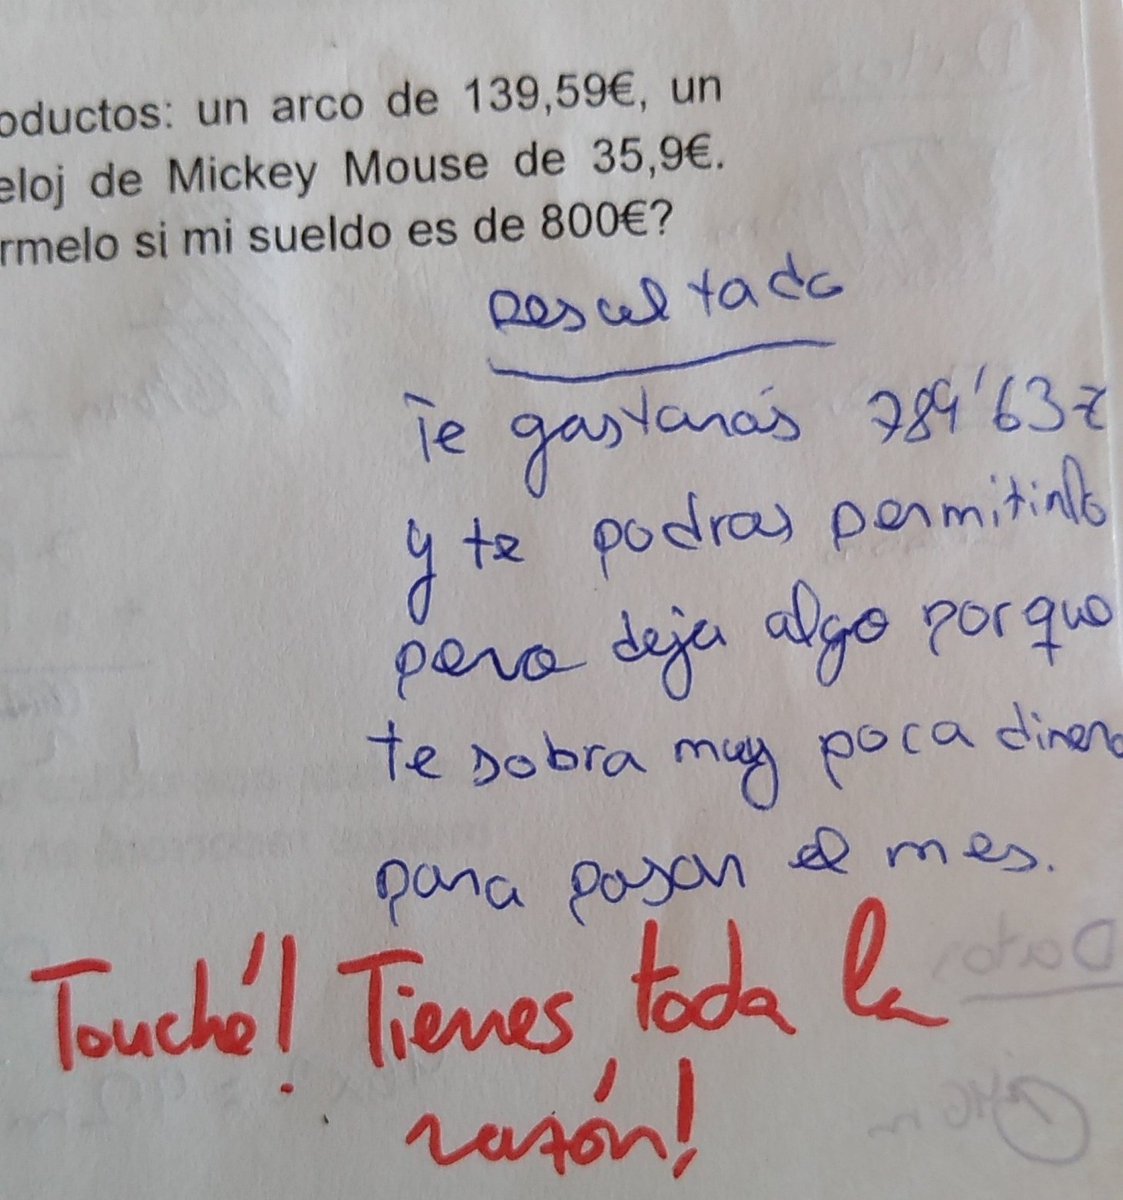 oductos: un arco de 139,59€, un
eloj de Mickey Mouse de 35,9€.
rmelo si mi sueldo es de 800€?
Resultado
Te gastarás 789'63€
y te podras permitirlo
pero deja algo porque
te sobra muy poca dinero
para pasar el mes.
Touché! Tienes toda la
razón!
Datos